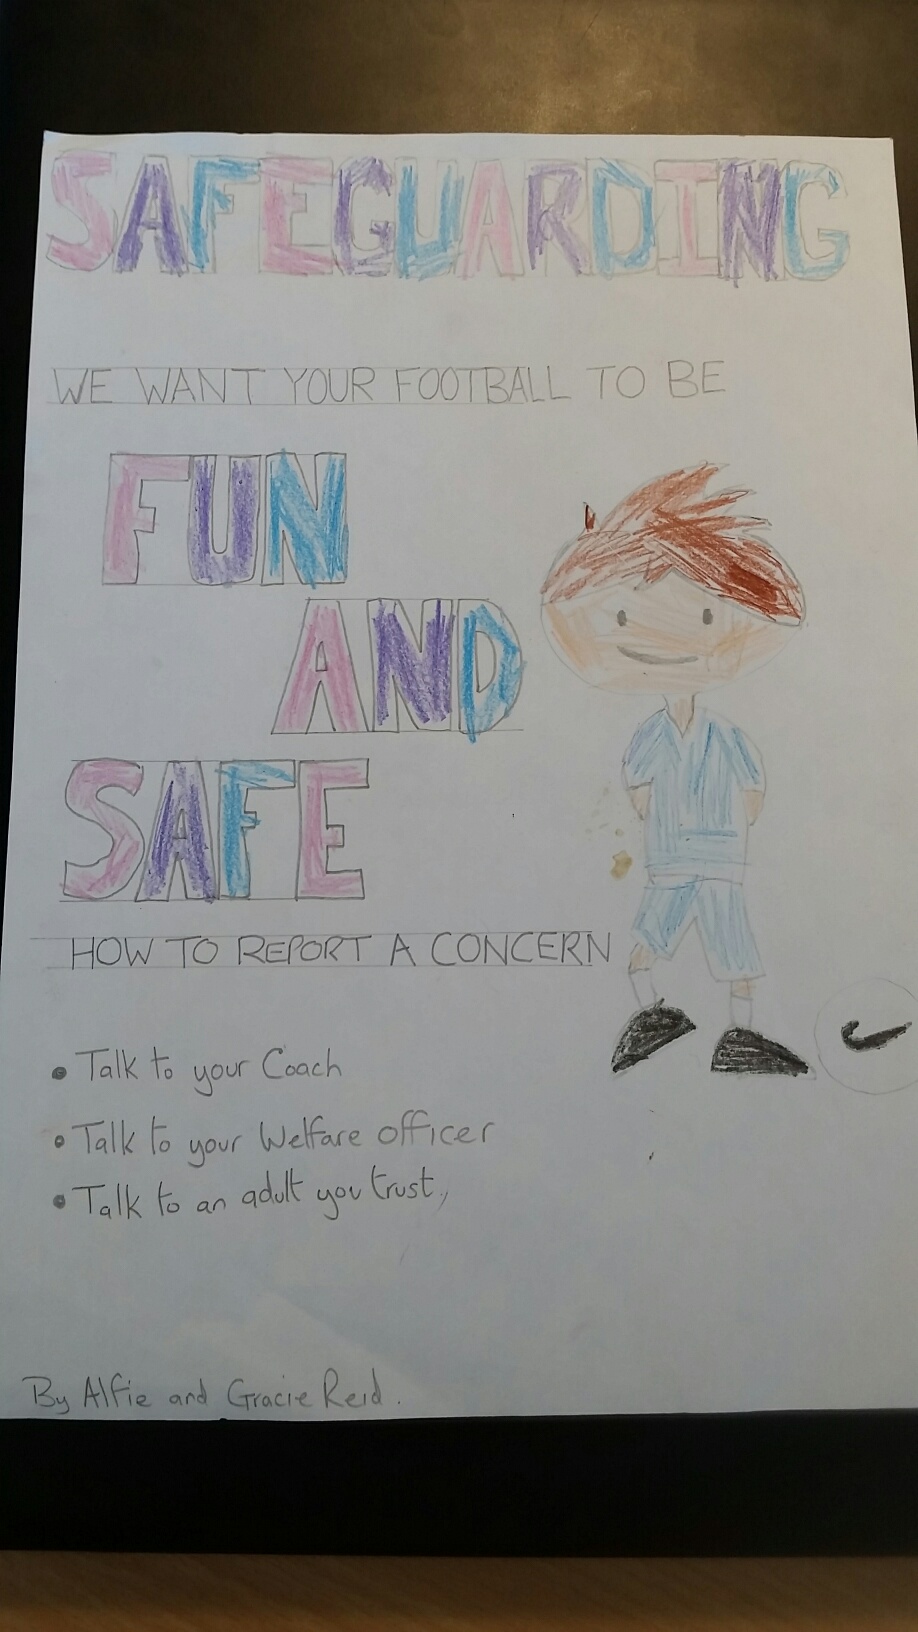 SAFEGUARDING
WE WANT YOUR FOOTBALL TO BE
FUN
AND
SAFE
HOW TO REPORT A CONCERN
• Talk to your Coach
• Talk to your Welfare officer
• Talk to an adult you trust.
By Alfie and Gracie Reid.